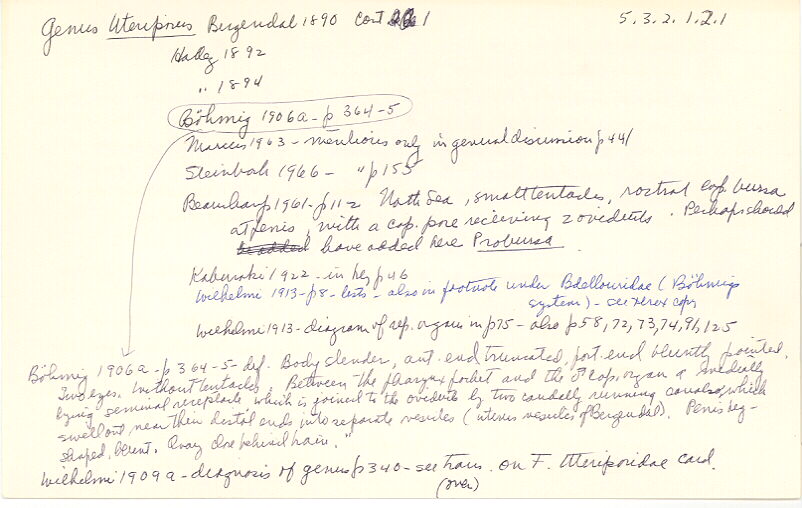 Genus Uteriporus Bergendal 1890 Cont 1 5.3.2.1.2.1
Hallez 1892
" 1894
Böhmig 1906a - p 364-5
Marcus 1963 - mentions only in general discussion p 441
Steinböck 1966 - " p 155
Beauchamp 1961 - p 112 North Sea, small tentacles, rostral cop. bursa
at penis, with a cop. pore receiving 2 oviducts. Perhaps should
be added have added here Probursa.
Kaburaki 1922 - in key p 46
Wilhelmi 1913 - p 8 - lists - also in footnote under Bdellouridae (Böhmigs
system) - see Xerox copy
Wilhelmi 1913 - diagram of rep. organs in p 75 - also p 58, 72, 73, 74, 91, 125
Böhmig 1906a - p 364-5 - def. Body slender, ant. end truncated, post. end bluntly pointed.
Two eyes. Without tentacles. Between the pharynx pocket and the ♂ cop. organ a medially
lying seminal receptacle which is joined to the oviducts by two caudally running canals, which
swell out near their distal ends into separate vesicles (uterus vesicles of Bergendal). Penis peg-
shaped, blunt. Ovary close behind brain."
Wilhelmi 1909a - diagnosis of genus p 340 - see trans. on F. Uteriporidae card.
(over)